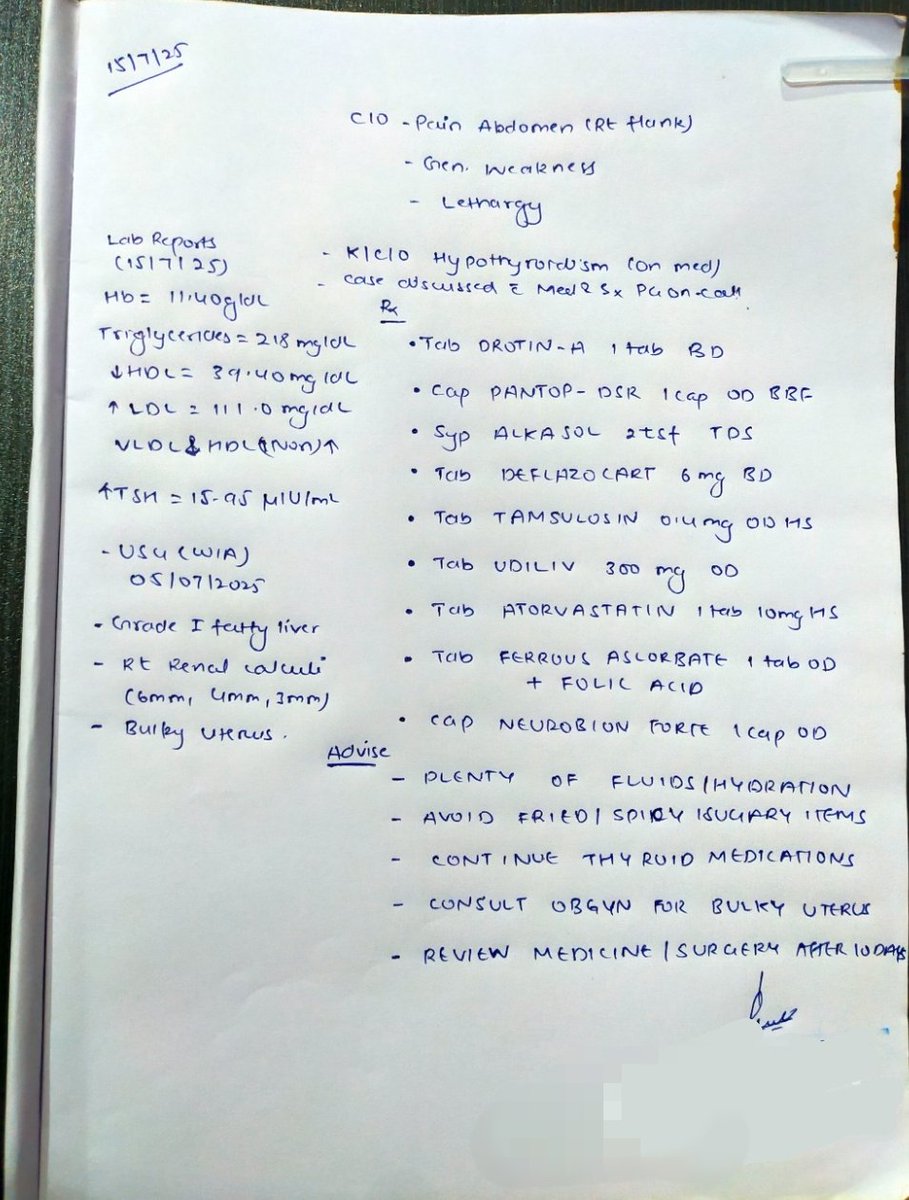 15/7/25
C/O - Pain Abdomen (Rt flank)
- Gen. Weakness
- Lethargy
Lab Reports
(15/7/25)
Hb = 11.40g/dL
Triglycerides = 218 mg/dL
↓HDL = 39.40 mg/dL
↑ LDL = 111.0 mg/dL
VLDL & HDL (Non) ↑
↑TSH = 15.95 µIU/mL
- USG (W/A)
05/07/2025
- Grade I fatty liver
- Rt Renal calculi
(6mm, 4mm, 3mm)
- Bulky Uterus.
- K/C/O Hypothyroidism (on med)
- Case discussed c̄ Med & Sx PG on-call
Rx
• Tab DROTIN-A 1 tab BD
• Cap PANTOP-DSR 1 cap OD BBF
• Syp ALKASOL 2tsf TDS
• Tab DEFLAZOCART 6 mg BD
• Tab TAMSULOSIN 0.4 mg OD HS
• Tab UDILIV 300 mg OD
• Tab ATORVASTATIN 1 tab 10mg HS
• Tab FERROUS ASCORBATE 1 tab OD
+ FOLIC ACID
• Cap NEUROBION FORTE 1 cap OD
Advise
- PLENTY OF FLUIDS/HYDRATION
- AVOID FRIED/SPICY/SUGARY ITEMS
- CONTINUE THYROID MEDICATIONS
- CONSULT OBGYN FOR BULKY UTERUS
- REVIEW MEDICINE/SURGERY AFTER 10 DAYS